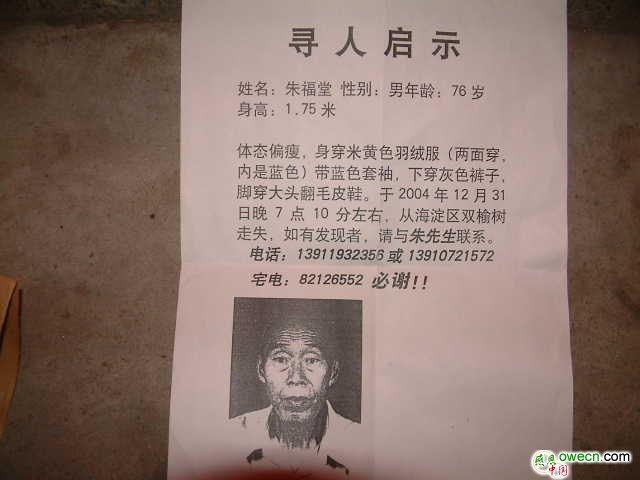 寻人启示
姓名：朱福堂 性别：男年龄：76 岁
身高：1.75 米
体态偏瘦，身穿米黄色羽绒服（两面穿，
内是蓝色）带蓝色套袖，下穿灰色裤子，
脚穿大头翻毛皮鞋。于 2004 年 12 月 31
日晚 7 点 10 分左右，从海淀区双榆树
走失，如有发现者，请与朱先生联系。
电话：13911932356 或 13910721572
宅电：82126552 必谢！！
感恩中国 owecn.com